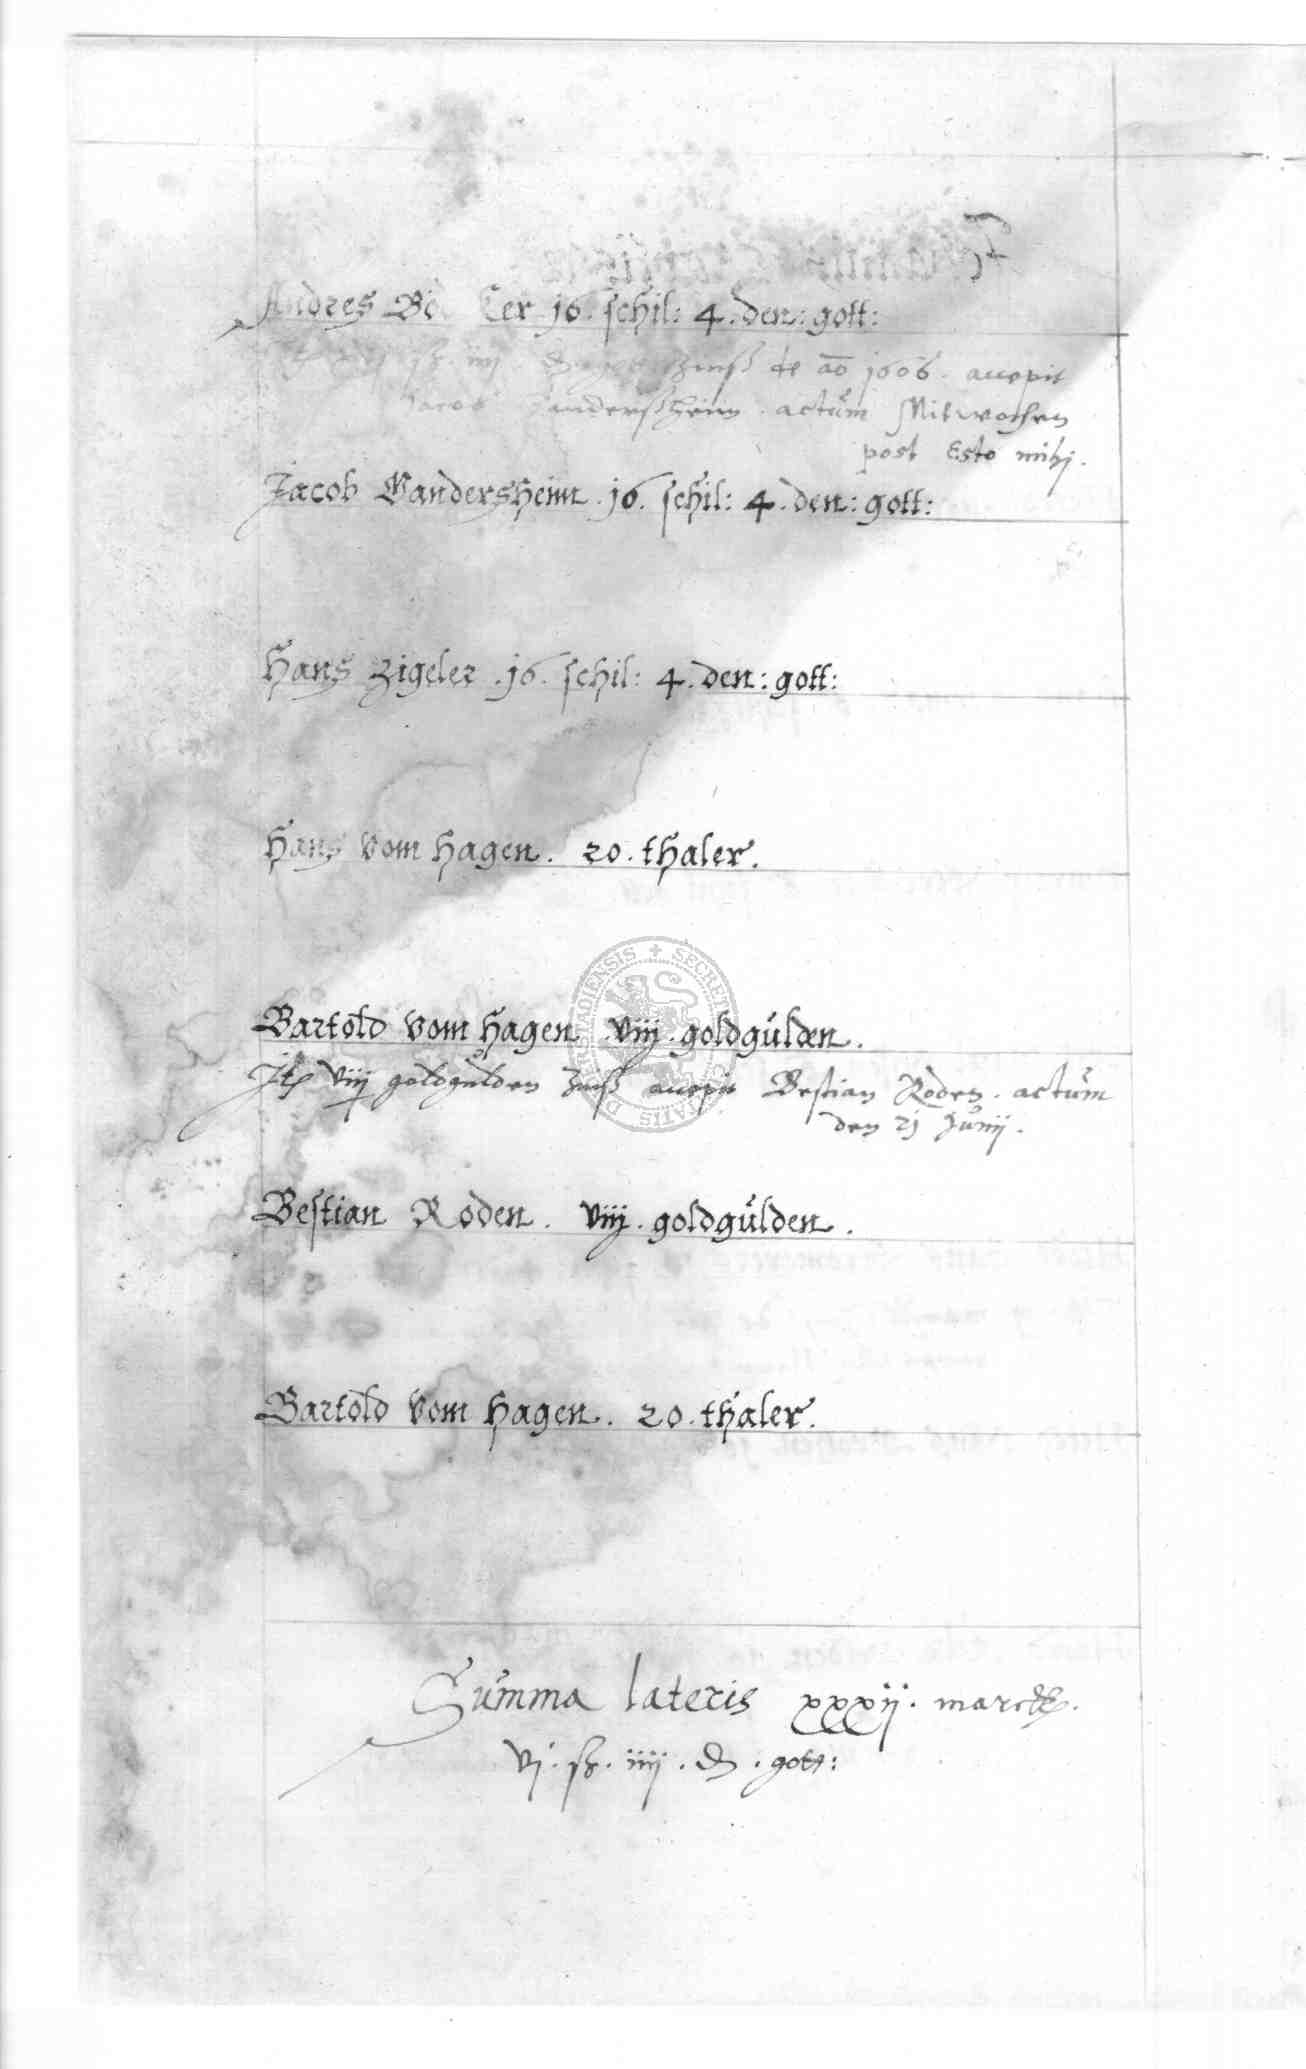 Andres Bö ker 16. schil: 4. den: gott:
iiij zinß de ao 1606. accepit
Jacob Ganderßheim. actum Mitwochen
post Esto mihj.
Jacob Gandersheim. 16. schil: 4. den: gott:
Hans Zigeler. 16. schil: 4. den: gott:
Hans vom Hagen. 20. thaler.
Bartold vom Hagen. viij. goldgülden.
Itt viij goldgulden zinß accepit Bestian Roden. actum
den 21 Junij.
Bestian Roden. viij. goldgülden.
Bartold vom Hagen. 20. thaler.
Summa lateris xxxij. marck.
vj. ß. iiij. d. gott:
SECRET CIVITATIS ERSTADIENSIS